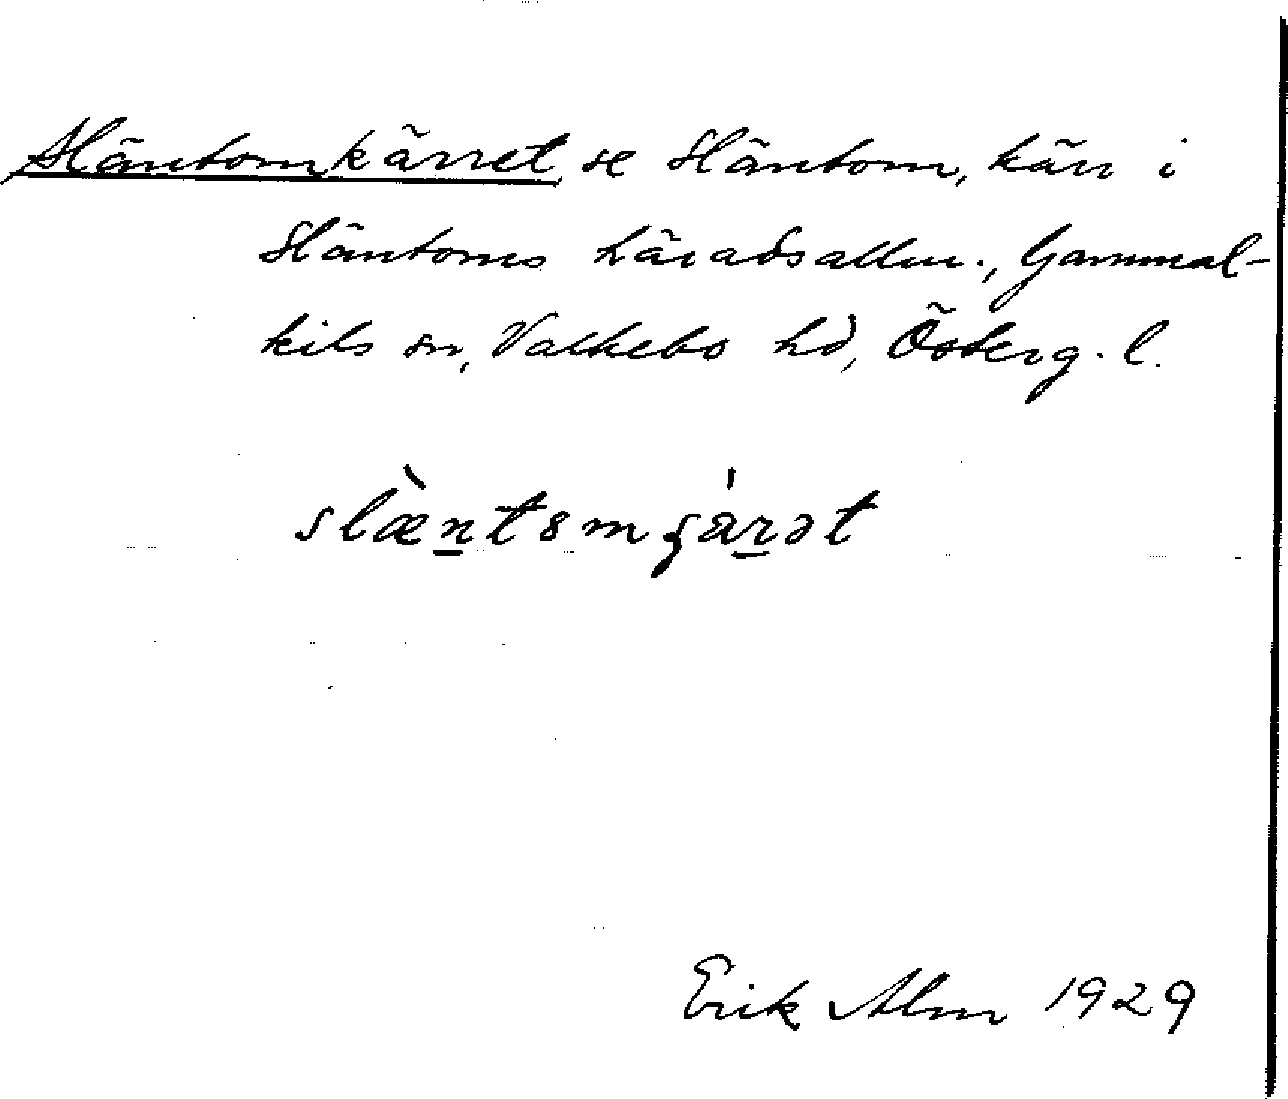 Släntomkärret, se Släntom, kärr i
Släntoms häradsallm., Gammal-
kils sn, Valkebo hd, Österg. l.
slæ̀n̲tɷmȿár̲ət
Erik Alm 1929